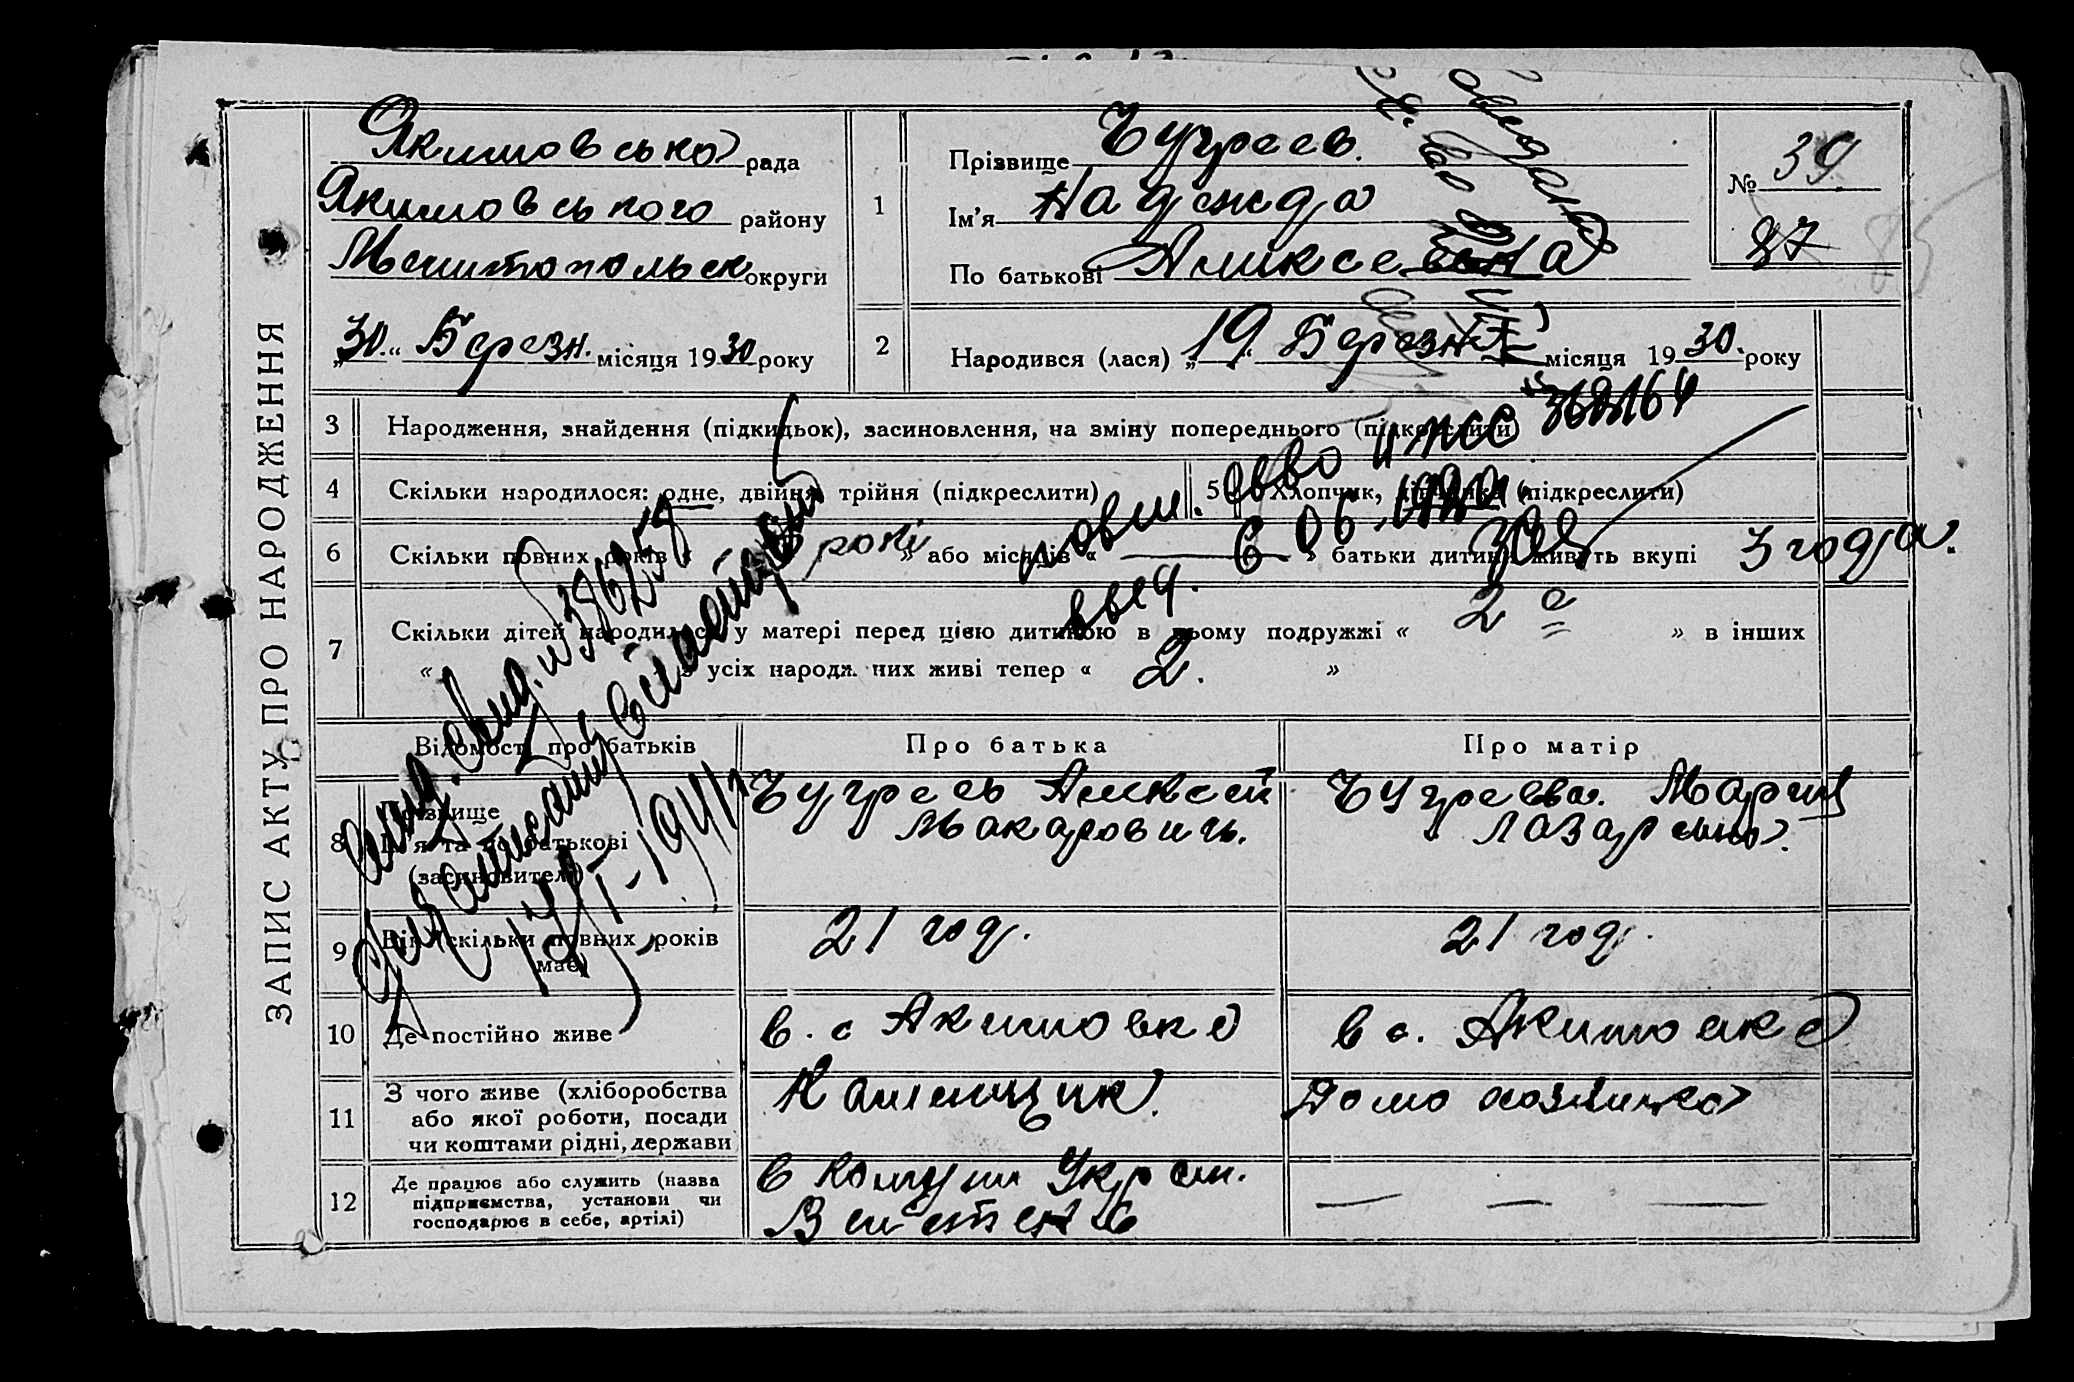 ЗАПИС АКТУ ПРО НАРОДЖЕННЯ
Якимовська рада
Якимовського району
Мелитопольск округи
„30“ Березн. місяця 1930 року
1
Прізвище Чугреев.
Ім’я Надежда
По батькові Алексеевна
№ 39
87
85
2
Народився (лася) „19“ Березня місяця 1930. року
3 Народження, знайдення (підкидьок), засиновлення, на зміну попереднього (підкреслити)
4 Скільки народилося: одне, двійня, трійня (підкреслити)
5 Хлопчик, дівчинка (підкреслити)
6 Скільки повних років « роки » або місяців « — » батьки дитини живуть вкупі 3 года.
7 Скільки дітей народилося у матері перед цією дитиною в цьому подружжі « 2 » в інших
« » з усіх народж. них живі тепер « 2. »
повт. свво и жсс 368164
выд. 6 06
выд. свид. № 386258
1941
Відомості про батьків
Про батька
Про матір
8 Прізвище
ім’я та по батькові
(засновителя)
Чугреев Алексей
Макарович.
Чугреева. Мария
Лазаревна.
9 Вік (скільки повних років
має)
21 год.
21 год.
10 Де постійно живе
в. с Акимовке
в с. Акимовке
11 З чого живе (хліборобства
або якої роботи, посади
чи коштами рідні, держави
Каменщик.
Домо хозяйка
12 Де працює або служить (назва
підприємства, установи чи
господарює в себе, артілі)
в
— — —